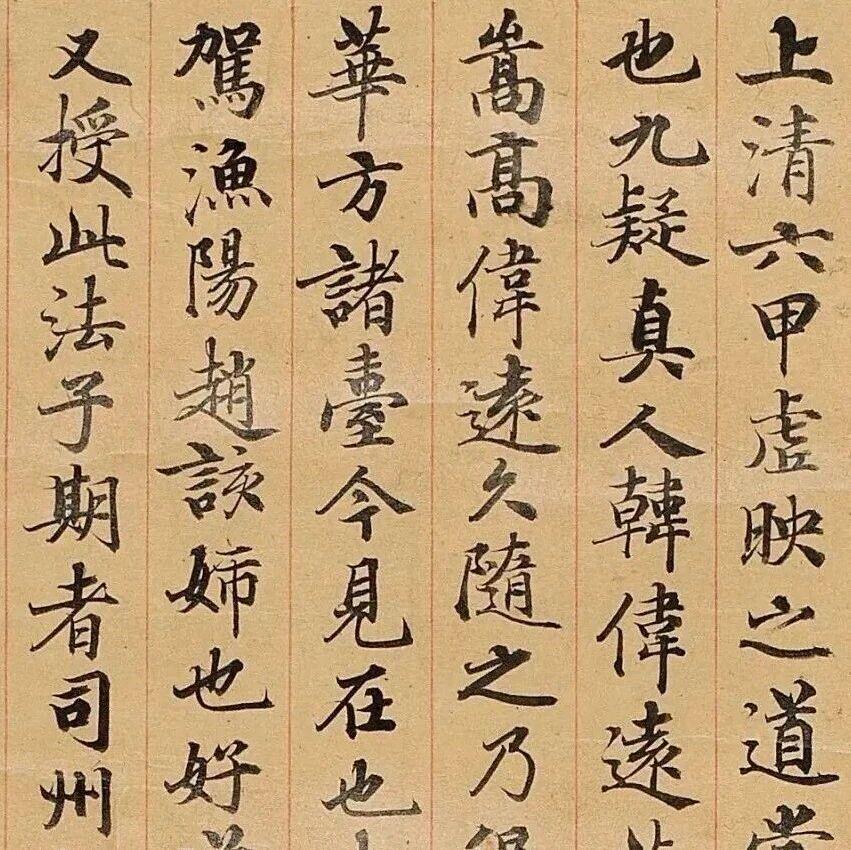 上清六甲虛映之道當
也九疑真人韓偉遠
嵩高偉遠久隨之乃得
華方諸臺今見在也
駕漁陽趙該姊也好道
又授此法子期者司州